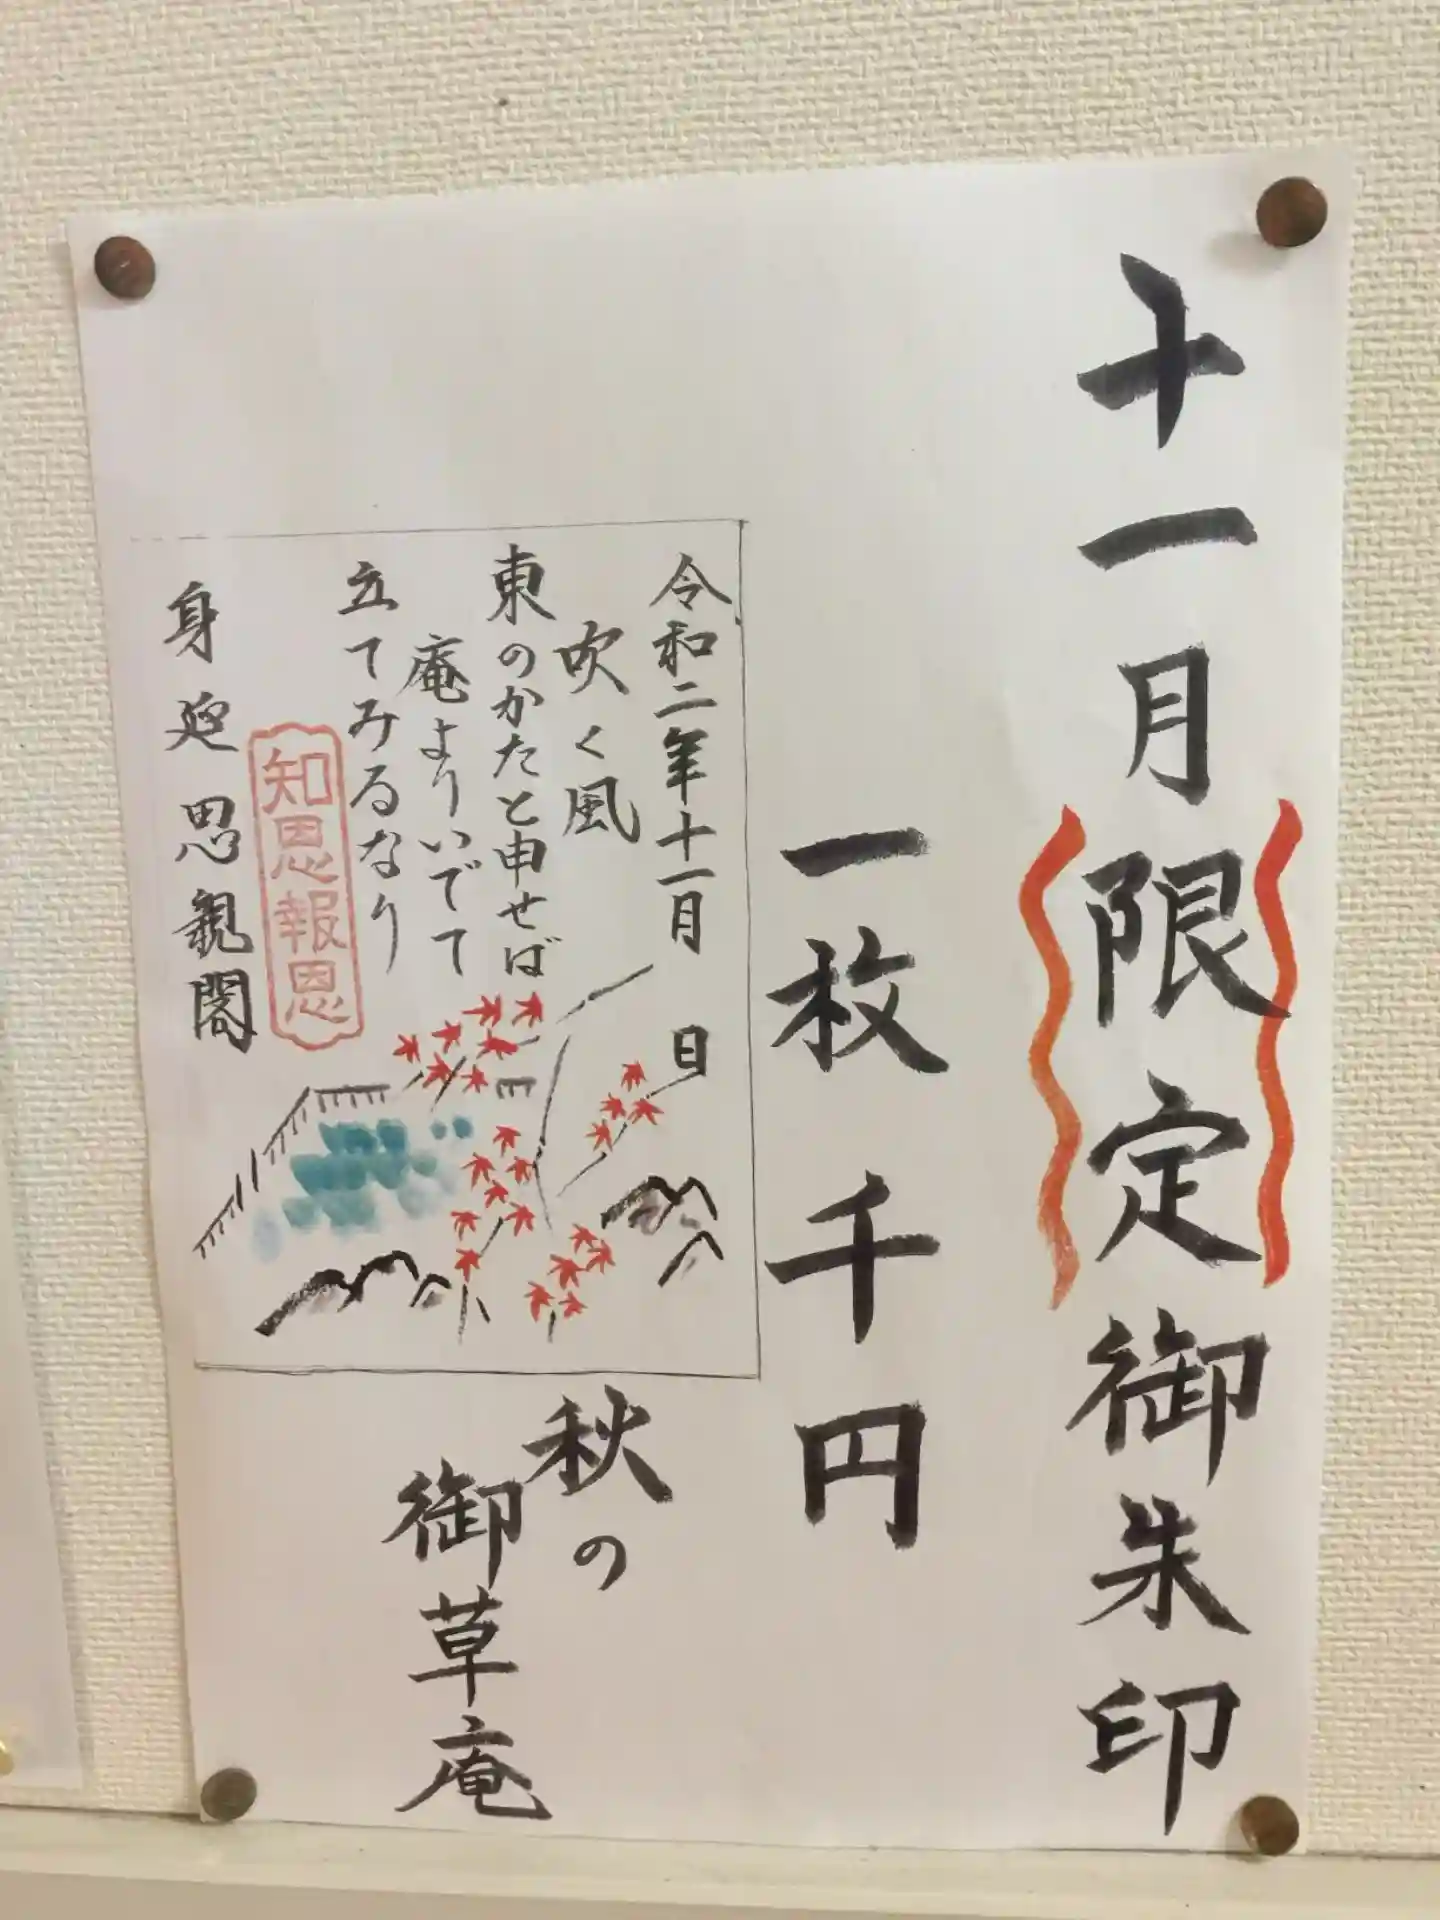 十一月限定御朱印
一枚千円
令和二年十一月 日
吹く風
東のかたと申せば
庵よりいでて
立てみるなり
知恩報恩
身延思親閣
秋の
御草庵